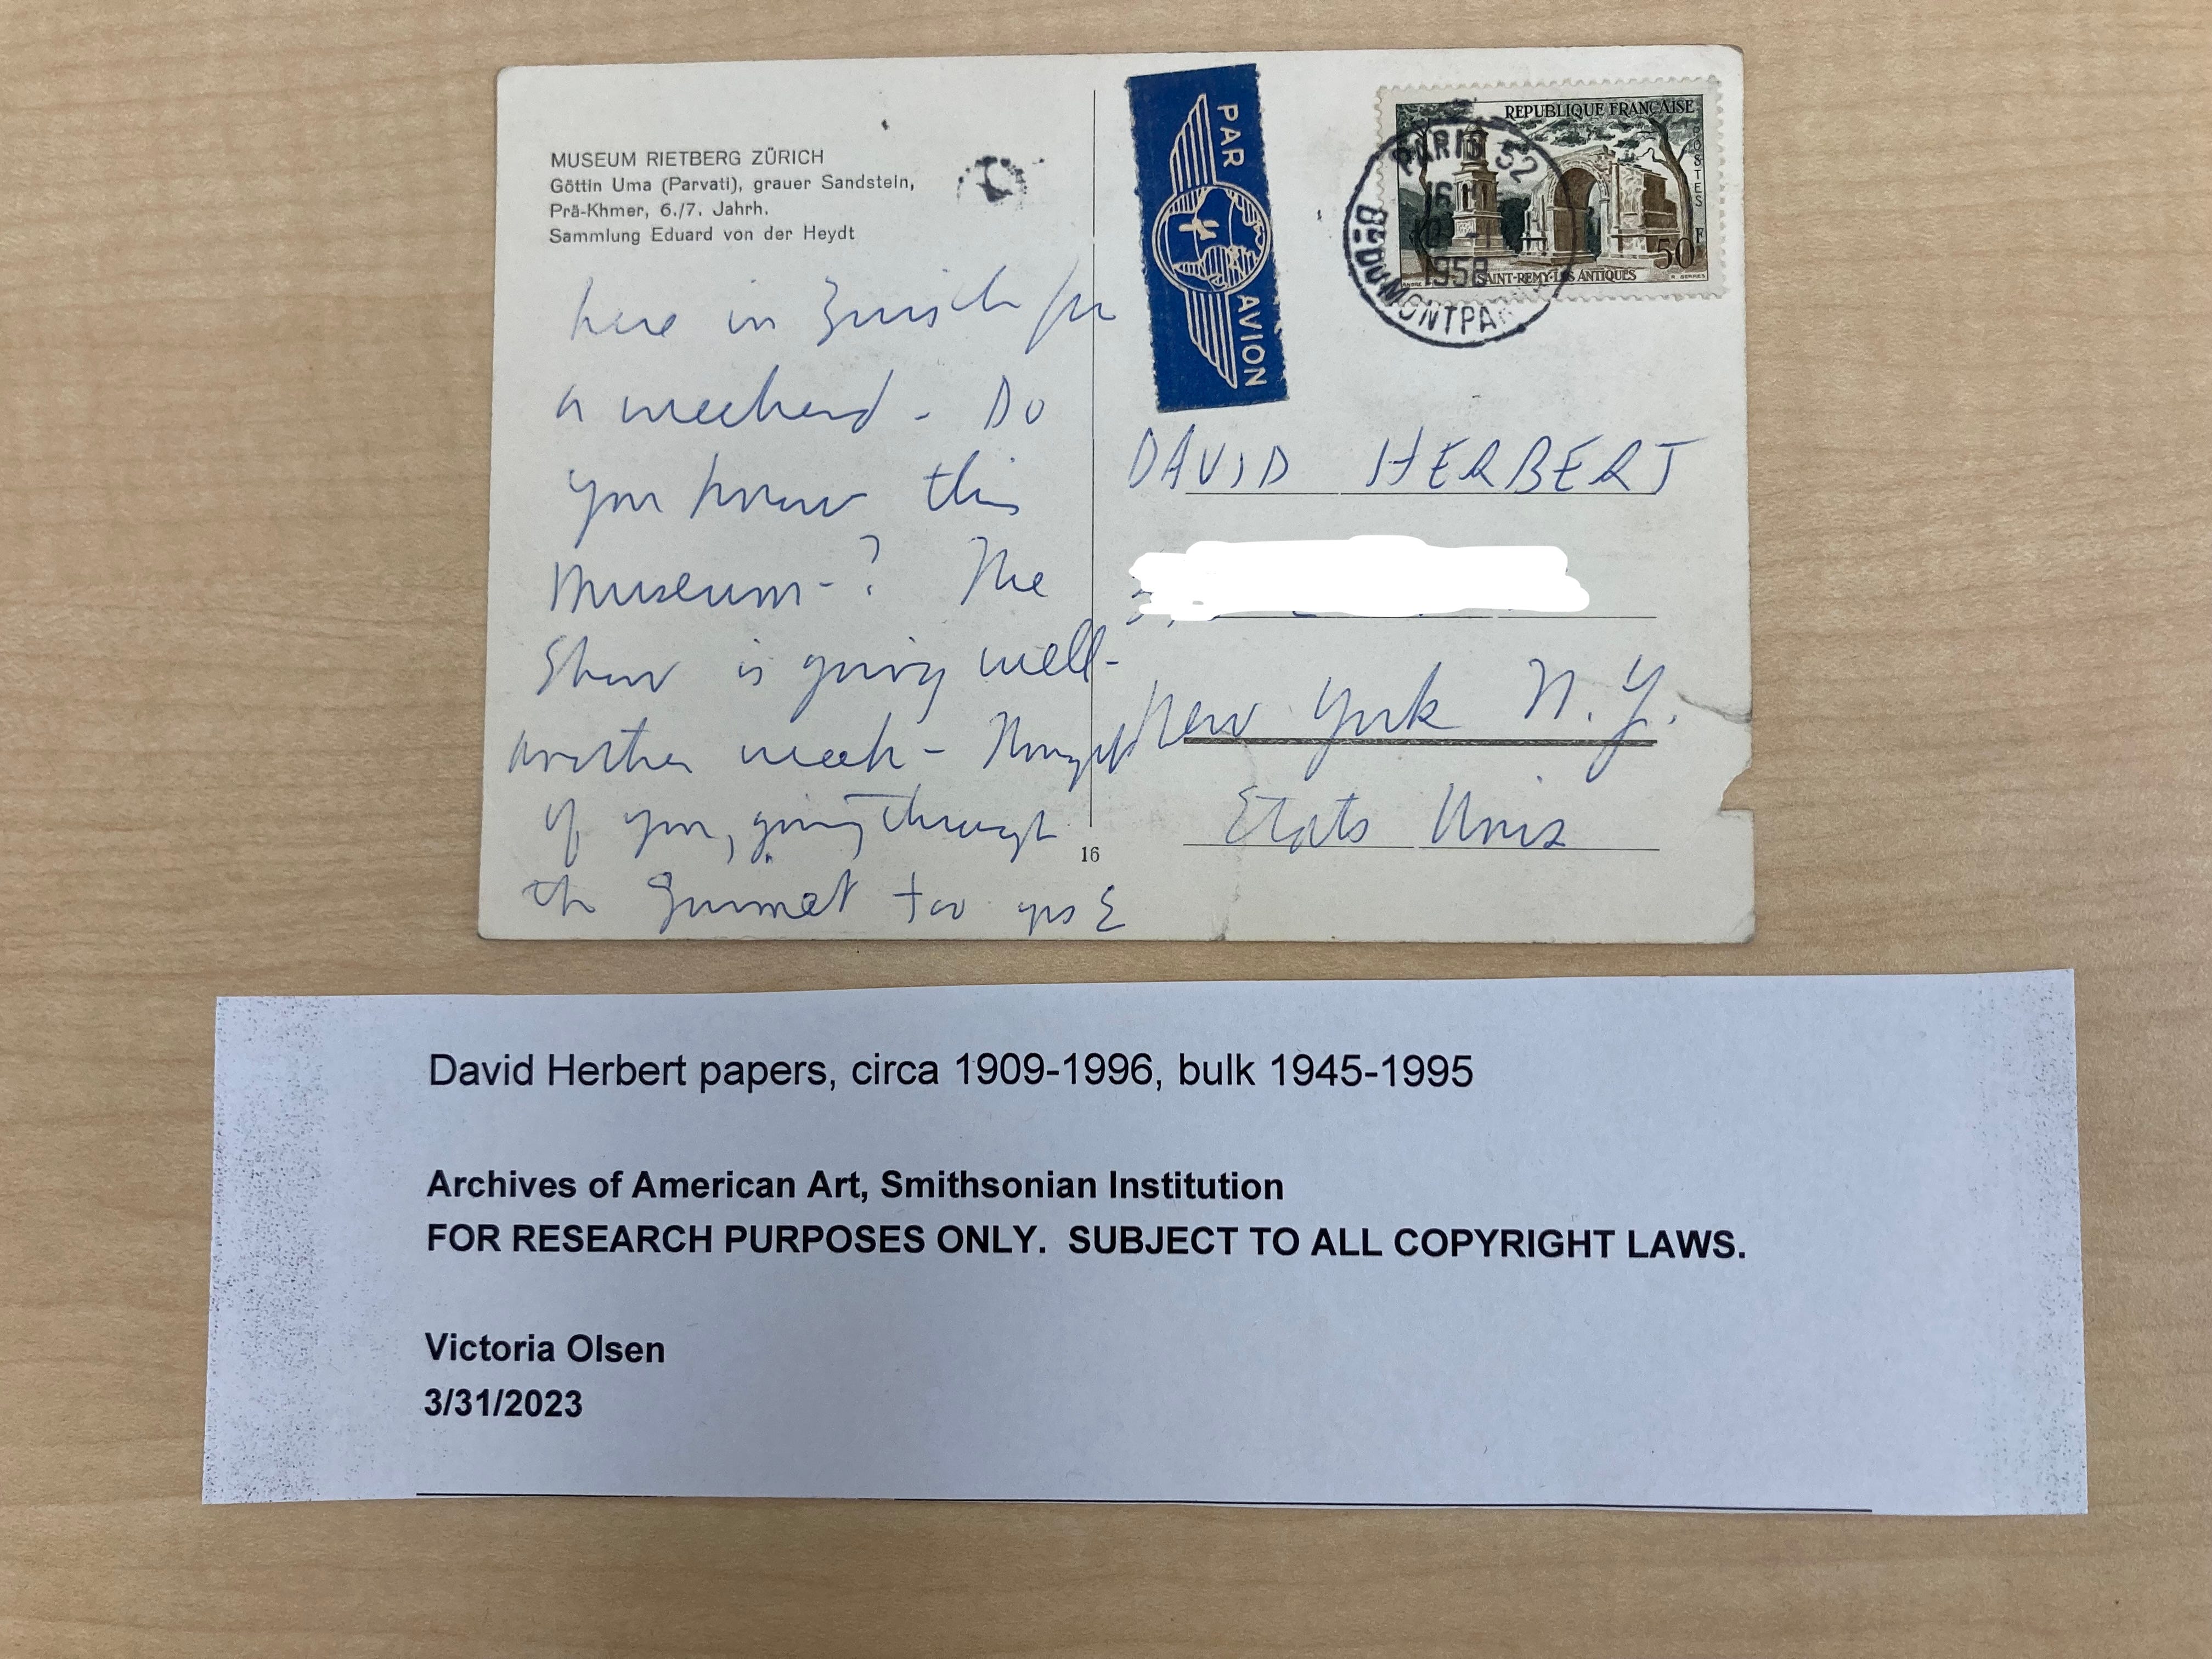 MUSEUM RIETBERG ZÜRICH
Göttin Uma (Parvati), grauer Sandstein,
Prä-Khmer, 6./7. Jahrh.
Sammlung Eduard von der Heydt
here in Zurich for
a weekend - Do
you know this
Museum-? The
Show is going well-
another week - Thought
of you, going through
the Guimet too
16
PAR AVION
REPUBLIQUE FRANÇAISE
POSTES
50F
SAINT-REMY-LES ANTIQUES
PARIS 52
16 H
1958
BD DU MONTPAR
DAVID HERBERT
New York N.Y.
Etats Unis
David Herbert papers, circa 1909-1996, bulk 1945-1995
Archives of American Art, Smithsonian Institution
FOR RESEARCH PURPOSES ONLY. SUBJECT TO ALL COPYRIGHT LAWS.
Victoria Olsen
3/31/2023